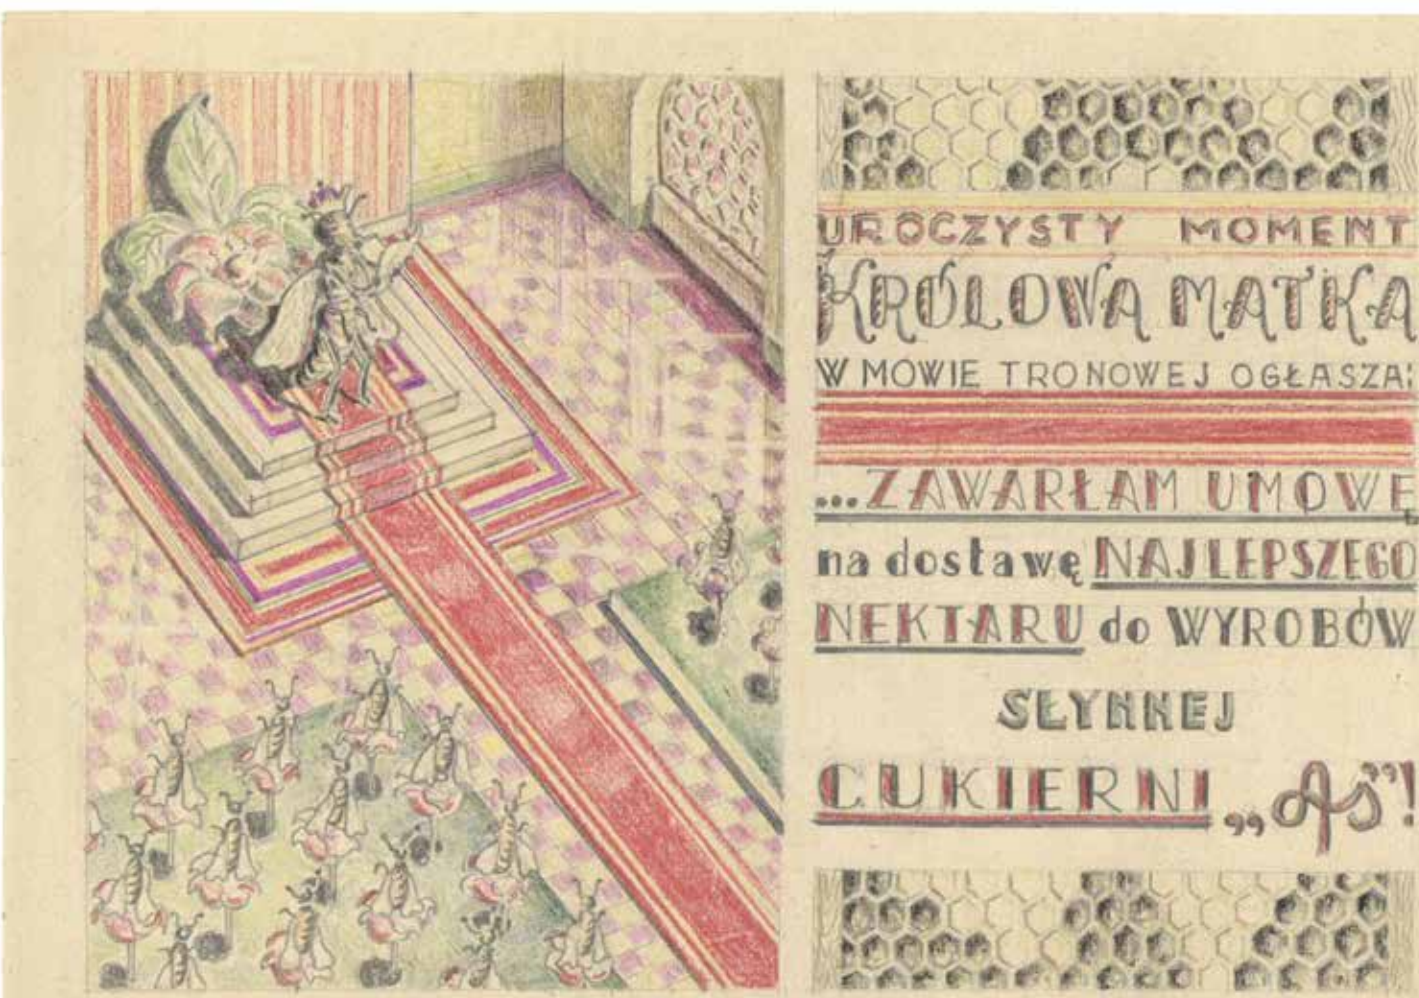 UROCZYSTY MOMENT
KRÓLOWA MATKA
W MOWIE TRONOWEJ OGŁASZA:
...ZAWARŁAM UMOWĘ
na dostawę NAJLEPSZEGO
NEKTARU do WYROBÓW
SŁYNNEJ
CUKIERNI „As”!